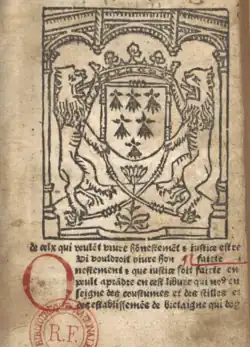 de celx qui voulēt viure hōnestemēt ⁊ iustice estre
Qui vouldroit viure hon faicte
nestement ⁊ que iustice soit faicte en
veult aprādre en cest libure qui nos en
seigne des coustumes et des stilles et
des establissemēs de bretaigne qui doy
R.F.